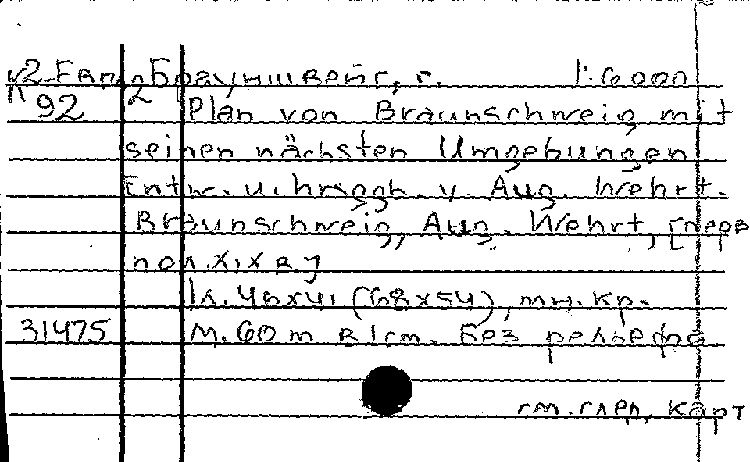 К2-Евп 2 Брауншвейг, г. 1:6000
92 Plan von Braunschweig mit
seinen nächsten Umgebungen
Entw. u. hrsgg. v. Aug. Wehrt.
Braunschweig, Aug. Wehrt, [перв
пол. XIX в.]
1л. 46x41 (68x54), мн. кр.
31475 М. 60 m в 1 см. Без рельефа
см. след. карт